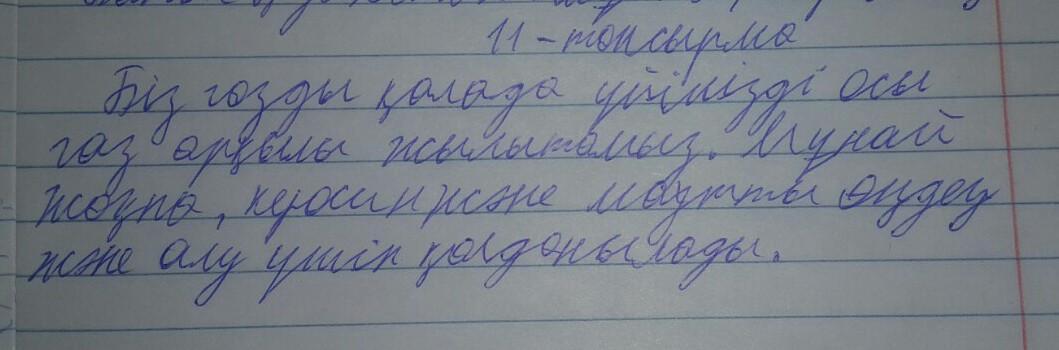 11-тапсырма
Біз газды қалада үйімізді осы
газ арқылы жылытамыз. Мұнай
жаңна, керосин және мазутты өңдеу
және алу үшін қолданылады.